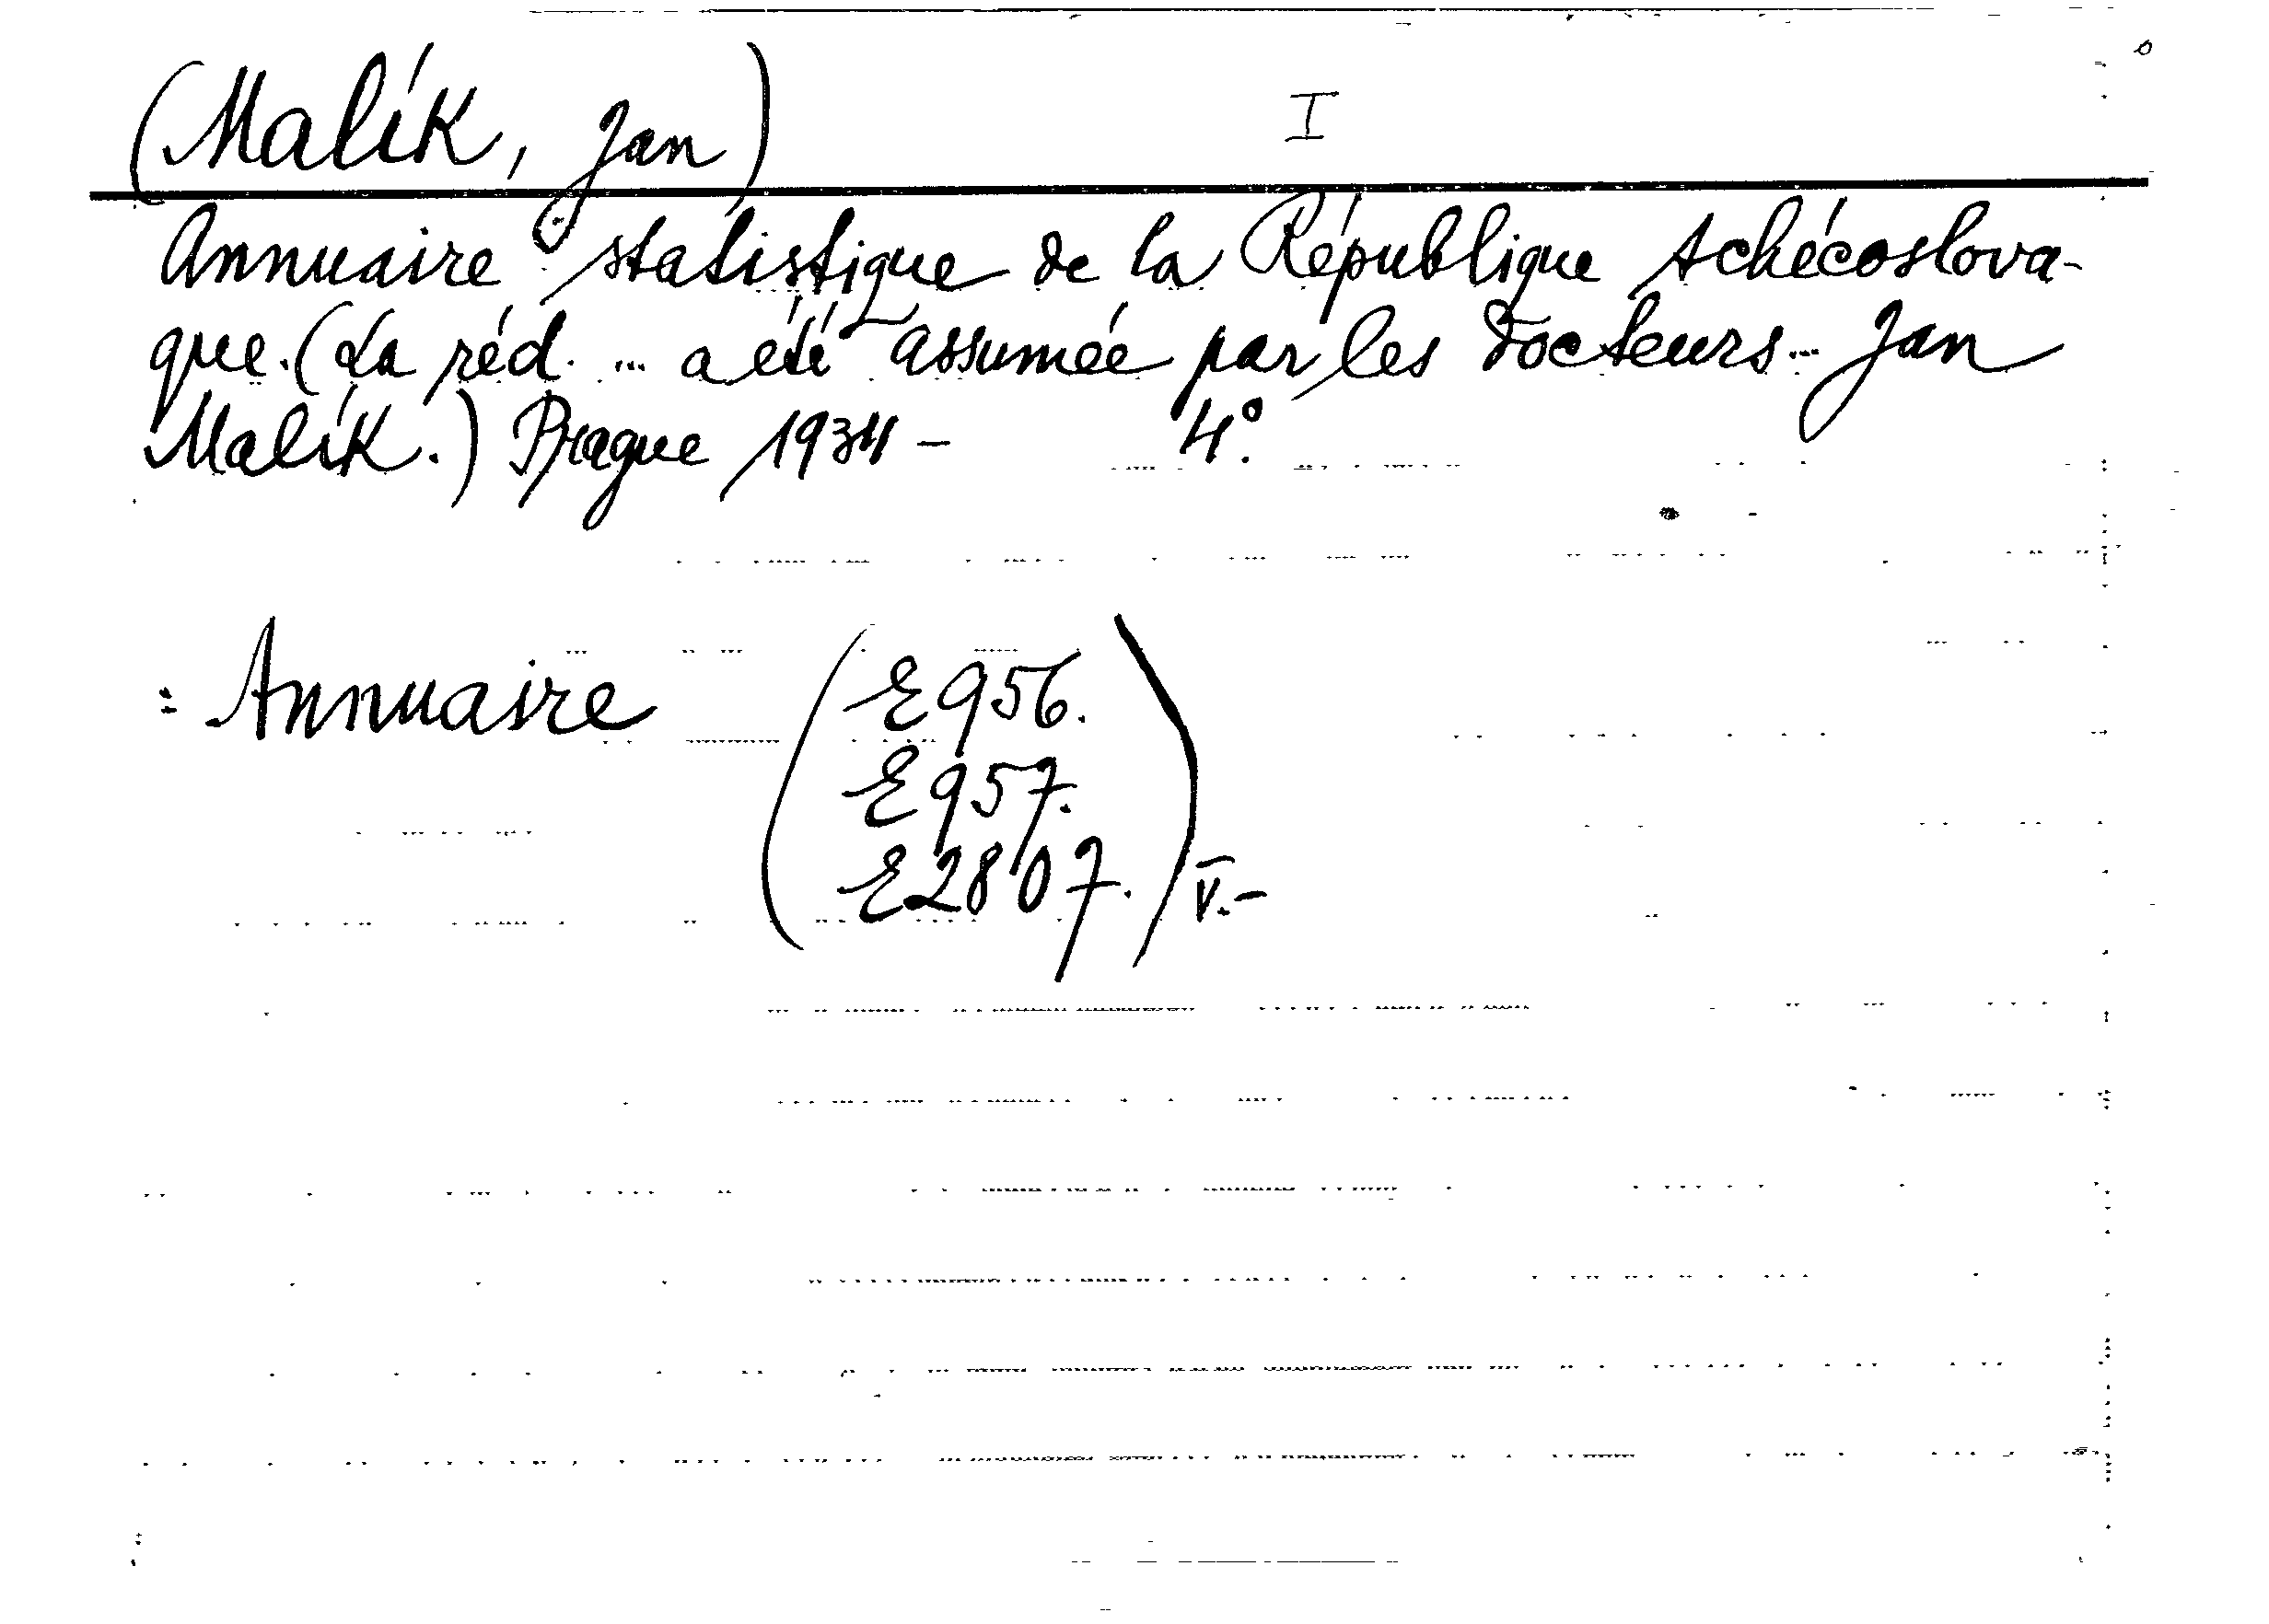 (Malík, Jan) I
Annuaire statistique de la République tchécoslova-
que. (La réd. ... a été assumée par les Docteurs ... Jan
Malík.) Prague 1934 - 4°.
: Annuaire (E 956.
E 957.
E 2807.) V.-